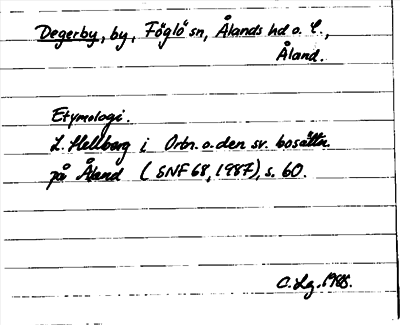 Degerby, by, Föglö sn, Ålands hd o. l.,
Åland.
Etymologi.
L. Hellberg i Ortn. o. den sv. bosättn.
på Åland (SNF 68, 1987), s. 60.
C. Lg. 1988.